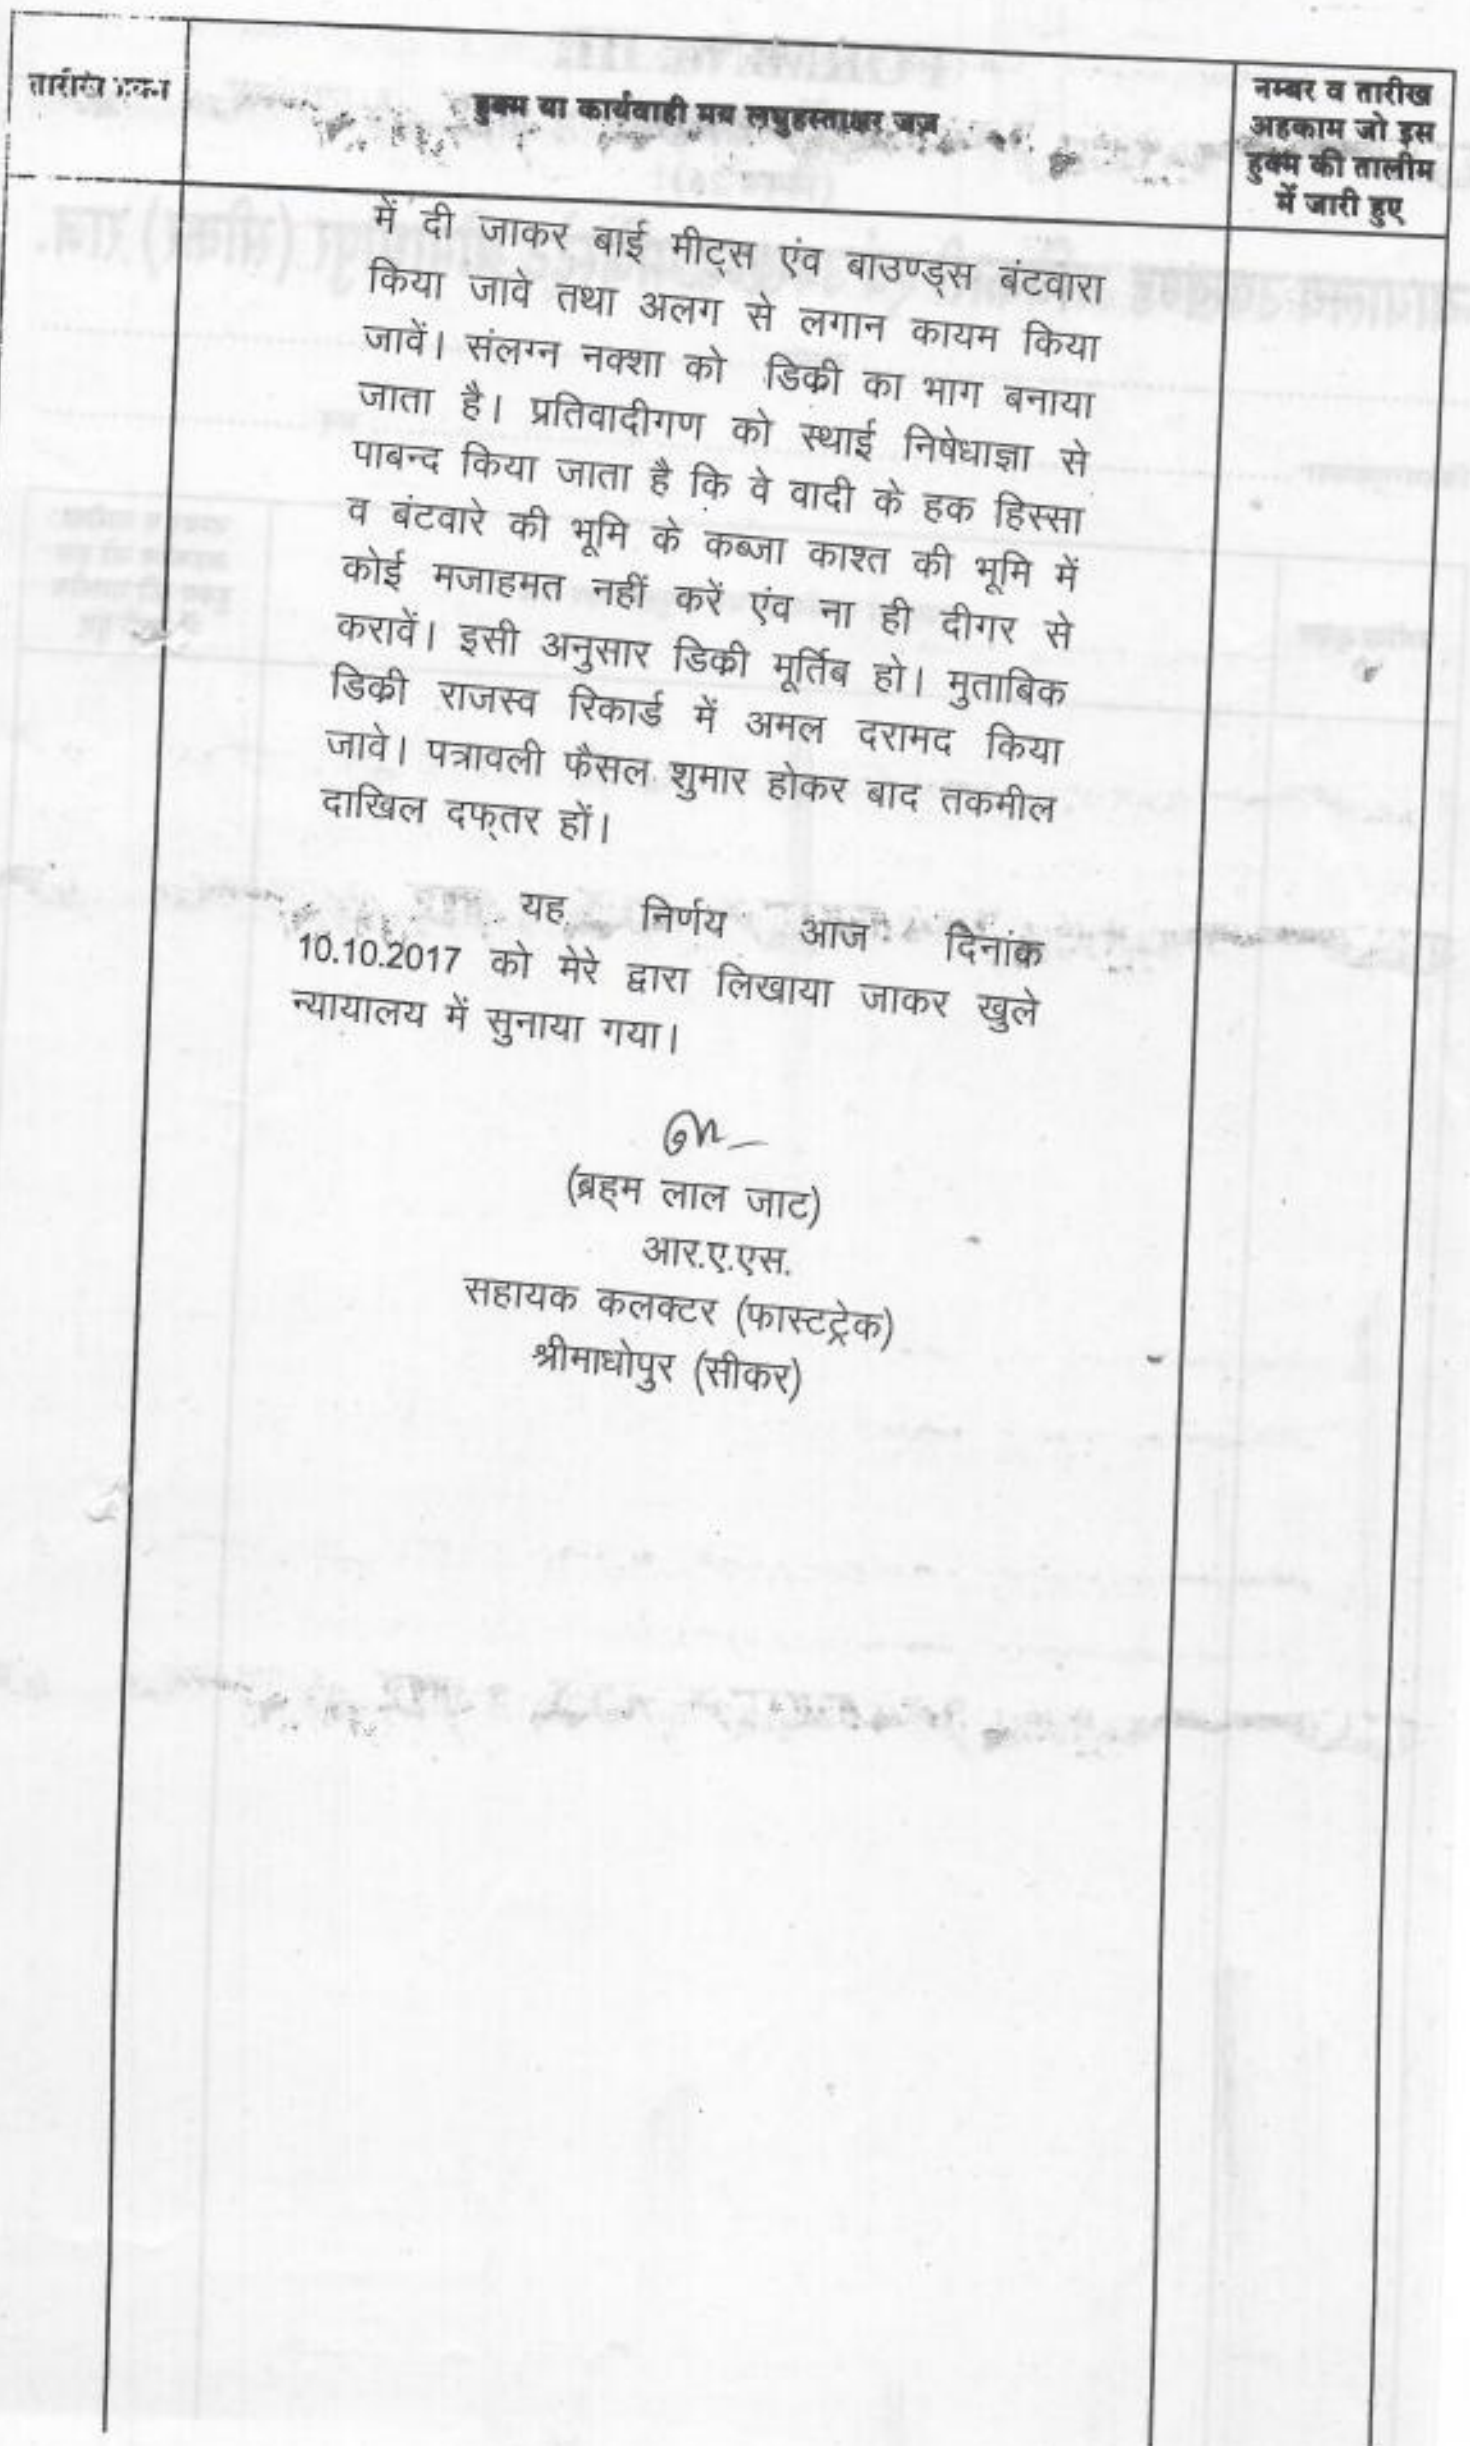 तारीख हुक्म
हुक्म या कार्यवाही मय लघुहस्ताक्षर जज़
नम्बर व तारीख
अहकाम जो इस
हुक्म की तालीम
में जारी हुए
में दी जाकर बाई मीट्स एंव बाउण्ड्स बंटवारा
किया जावे तथा अलग से लगान कायम किया
जावें। संलग्न नक्शा को डिक्री का भाग बनाया
जाता है। प्रतिवादीगण को स्थाई निषेधाज्ञा से
पाबन्द किया जाता है कि वे वादी के हक हिस्सा
व बंटवारे की भूमि के कब्जा काश्त की भूमि में
कोई मजाहमत नहीं करें एंव ना ही दीगर से
करावें। इसी अनुसार डिक्री मूर्तिब हो। मुताबिक
डिक्री राजस्व रिकार्ड में अमल दरामद किया
जावे। पत्रावली फैसल शुमार होकर बाद तकमील
दाखिल दफ्तर हों।
यह निर्णय आज दिनांक
10.10.2017 को मेरे द्वारा लिखाया जाकर खुले
न्यायालय में सुनाया गया।
(ब्रह्म लाल जाट)
आर.ए.एस.
सहायक कलक्टर (फास्टट्रेक)
श्रीमाधोपुर (सीकर)